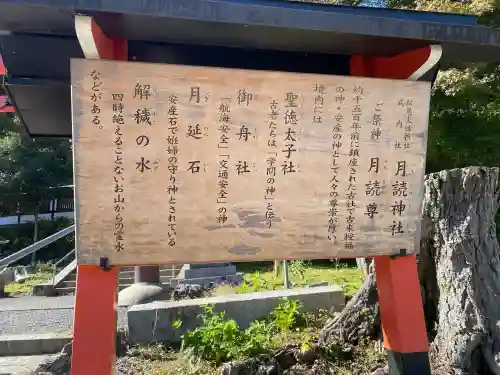 松尾大社摂社
式内社
月読神社
ご祭神 月読尊
約千五百年前に鎮座された古社で古来福
の神・安産の神として人々の尊崇が厚い。
境内には
聖徳太子社
古老たちは「学問の神」と伝う
御舟社
「航海安全」「交通安全」の神
月延石
安産石で妊婦の守り神とされている
解穢の水
四時絶えることないお山からの霊水
などがある。